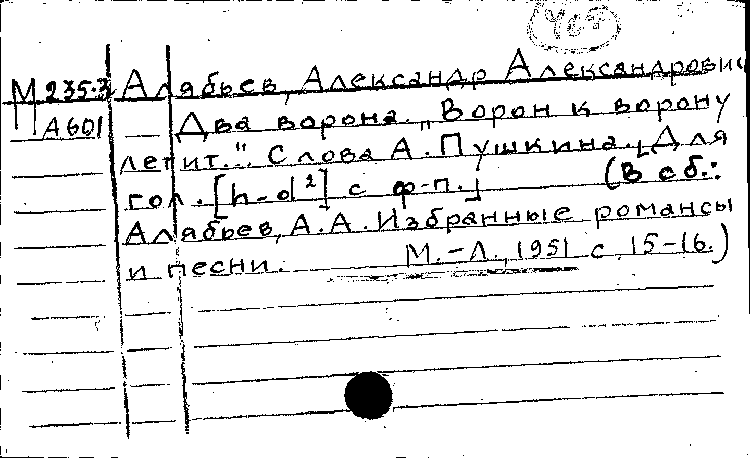 467
М 235.3 Алябьев, Александр Александрович
А601 — Два ворона. „Ворон к ворону
летит.." Слова А. Пушкина. [Для
гол. [h-d²] с ф-п.] (В сб.:
Алябьев, А. А. Избранные романсы
и песни. М.-Л., 1951 с. 15-16.)